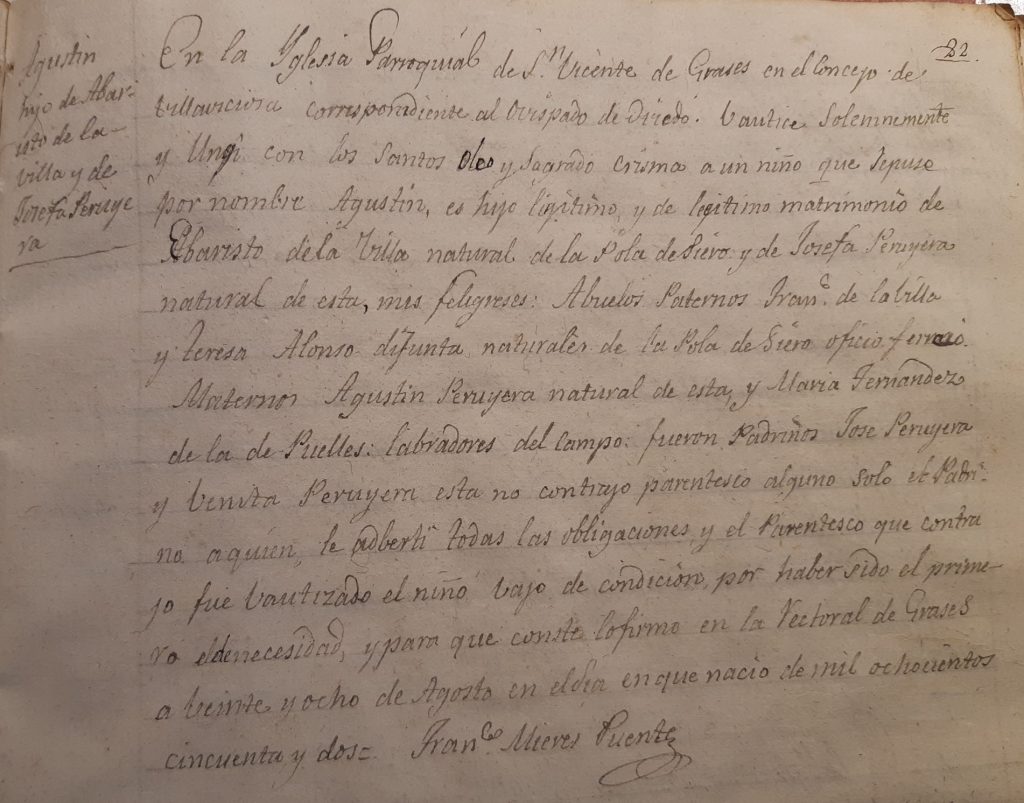 Agustin
hijo de Abar-
isto de la
villa y de
Josefa Peruye
ra
82.
En la Yglesia Parroquial de S.n Vicente de Grases en el Concejo de
Villaviciosa correspondiente al Ovispado de Oviedo. Vautice Solemnemente
y Ungi con los Santos Oleo y Sagrado Crisma a un niño que sepuso
por nombre Agustin, es hijo lejitimo, y de lejitimo matrimonio de
Ebaristo de la Villa natural de la Pola de Siero y de Josefa Peruyera
natural de esta, mis feligreses: Abuelos Paternos Fran.co de la Villa
y Teresa Alonso difunta naturales de la Pola de Siero oficio
Maternos Agustin Peruyera natural de esta, y Maria Fernandez
de la de Puelles: labradores del Campo: fueron Padriños Jose Peruyera
y Venita Peruyera esta no contrajo parentesco alguno solo el Padri-
no aquien, le adberti todas las obligaciones, y el Parentesco que contra
jo fue Vautizado el niño vajo de condicion, por haber sido el prime-
ro eldenecesidad, y para que conste lofirmo en la Rectoral de Grases
a veinte y ocho de Agosto en eldia enque nacio de mil ochocientos
cincuenta y dos= Fran.co Mieres Puente